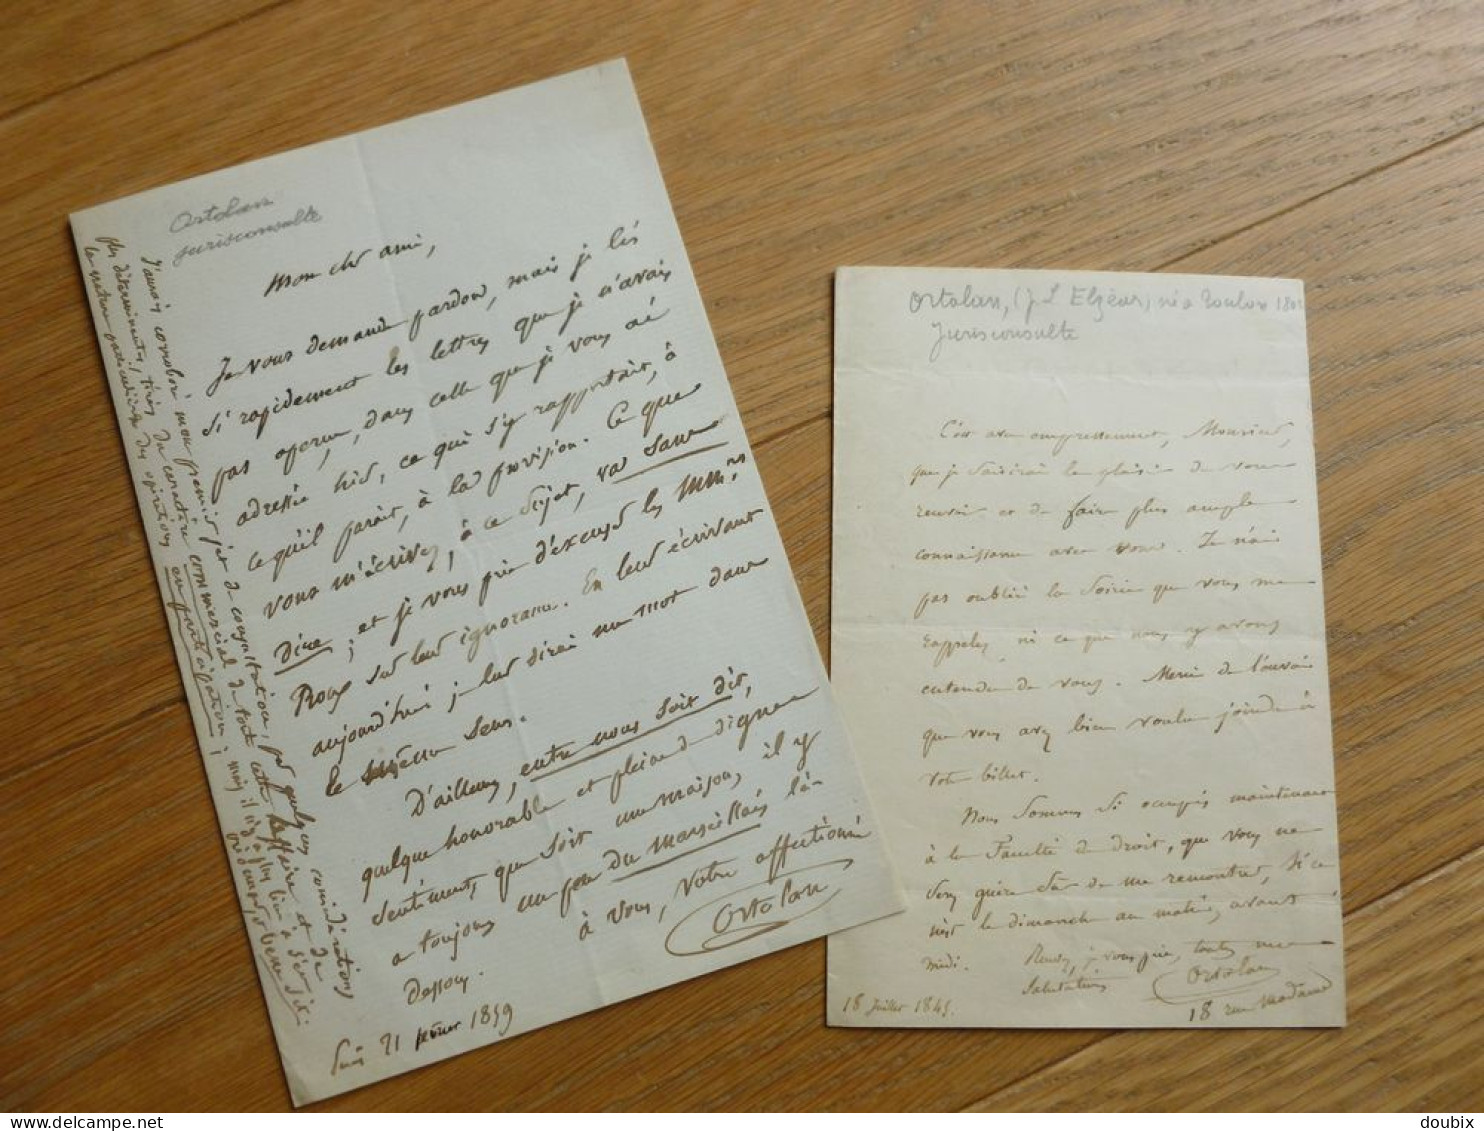 Ortolan
jurisconsulte
Mon cher ami,
Je vous demande pardon, mais je lis
si rapidement les lettres que je n'avais
pas aperçu, dans celle que je vous ai
adressée hier, ce qui s'y rapportait, à
ce qu'il paraît, à la provision. Ce que
vous m'écrivez, à ce sujet, va sans
dire; et je vous prie d'excuser les MM.rs
Roux sur leur ignorance. En leur écrivant
aujourd'hui je leur dirai un mot dans
le même sens.
D'ailleurs, entre nous soit dit,
quelque honorable et pleine de dignes
sentiments, que soit une maison, il y
a toujours un peu du marseillais là-
dessous.
à vous, votre affectionné
Ortolan
21 février 1859
J'aurais corroboré mon premier jet de conjuration, par quelques considérations
plus déterminantes, tirées du caractère commercial de toute cette affaire et de
la nature particulière des opérations en participation; mais il n'a
Ortolan, (J. L Elzéar) né à Toulon 1802
Jurisconsulte
C'est avec empressement, Monsieur,
que je saisirai le plaisir de vous
revoir et de faire plus ample
connaissance avec vous. Je n'ai
pas oublié la soirée que vous me
rappelez, ni ce que nous y avons
entendu de vous. Merci de l'envoi
que vous avez bien voulu joindre à
votre billet.
Nous sommes si occupés maintenant
à la Faculté de droit, que vous ne
serez guère sûr de me rencontrer, si ce
n'est le dimanche au matin, avant
midi.
Recevez, je vous prie, toutes mes
salutations
Ortolan
18 Juillet 1845.
18 rue Madame
delcampe.net
doubix